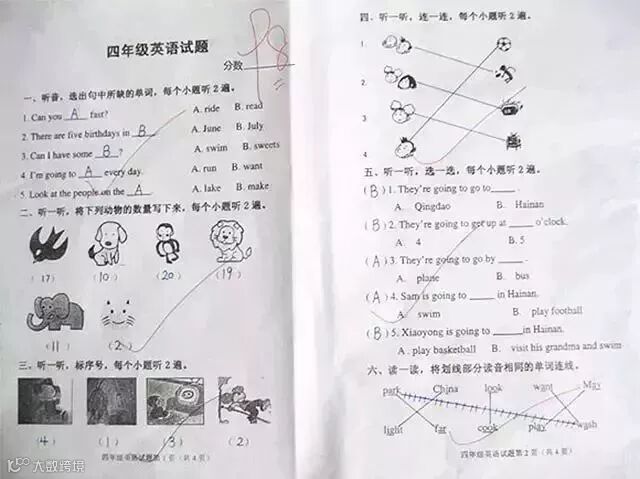 四年级英语试题
98
分数
一、听音，选出句中所缺的单词，每个小题听2遍。
1. Can you A fast? A. ride B. read
2. There are five birthdays in B. A. June B. July
3. Can I have some B ? A. swim B. sweets
4. I'm going to A every day. A. run B. want
5. Look at the people on the A. A. lake B. make
二、听一听，将下列动物的数量写下来，每个小题听2遍。
(17) (10) (20) (19)
(11) (2)
三、听一听，标序号，每个小题听2遍。
(4) (1) (3) (2)
四年级英语试题第1页（共4页）
四、听一听，连一连，每个小题听2遍。
1.
2.
3.
4.
五、听一听，选一选，每个小题听2遍。
(B) 1. They're going to go to____.
A. Qingdao B. Hainan
(B) 2. They're going to get up at ____ o'clock.
A. 4 B. 5
(A) 3. They're going to go by ____.
A. plane B. bus
(A) 4. Sam is going to ____ in Hainan.
A. swim B. play football
(B) 5. Xiaoyong is going to ____ in Hainan.
A. play basketball B. visit his grandma and swim
六、读一读，将划线部分读音相同的单词连线。
park China look want May
light far cook play wash
四年级英语试题第2页（共4页）
大数跨境